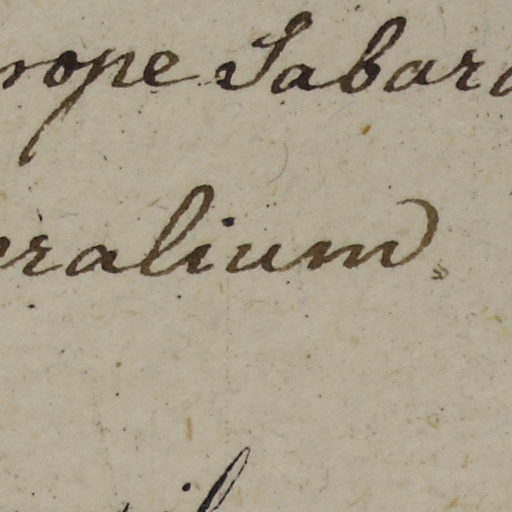 rope Sabara
eralium